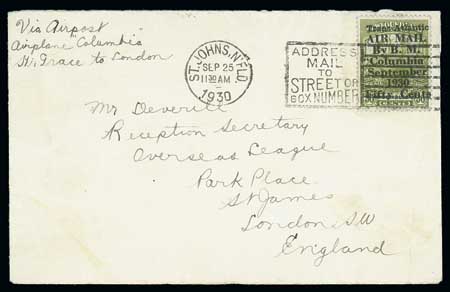 Via Airpost
Airplane "Columbia
Hr. Grace to London
ST. JOHN'S, N'F'LD
SEP 25
11 30 AM
1930
ADDRESS
MAIL
TO
STREET OR
BOX NUMBER
Trans-Atlantic
AIR MAIL
By B. M.
"Columbia"
September
1930
Fifty Cents
Mr Deverill
Reception Secretary
Overseas League
Park Place
St James
London. S.W
England